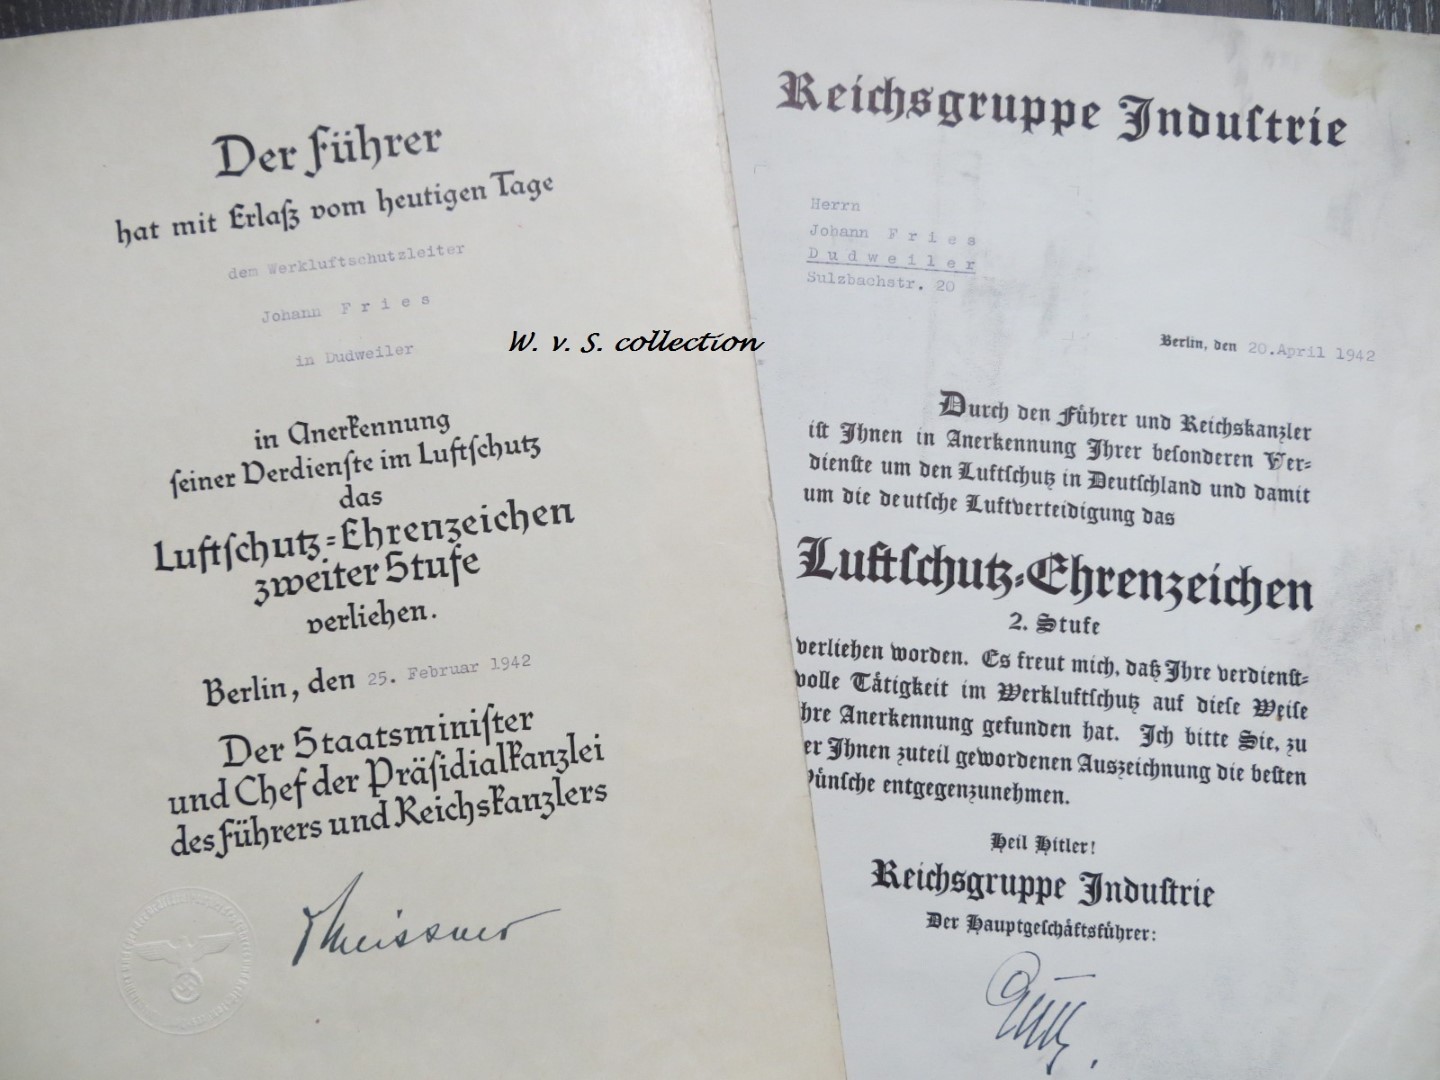 Der Führer
hat mit Erlaß vom heutigen Tage
dem Werkluftschutzleiter
Johann F r i e s
in Dudweiler
in Anerkennung
seiner Verdienste im Luftschutz
das
Luftschutz=Ehrenzeichen
zweiter Stufe
verliehen.
Berlin, den 25. Februar 1942
Der Staatsminister
und Chef der Präsidialkanzlei
des Führers und Reichskanzlers
Meissner
W. v. S. collection
Reichsgruppe Industrie
Herrn
Johann F r i e s
D u d w e i l e r
Sulzbachstr. 20
Berlin, den 20.April 1942
Durch den Führer und Reichskanzler
ist Ihnen in Anerkennung Ihrer besonderen Ver=
dienste um den Luftschutz in Deutschland und damit
um die deutsche Luftverteidigung das
Luftschutz=Ehrenzeichen
2. Stufe
verliehen worden. Es freut mich, daß Ihre verdienst=
volle Tätigkeit im Werkluftschutz auf diese Weise
hre Anerkennung gefunden hat. Ich bitte Sie, zu
er Ihnen zuteil gewordenen Auszeichnung die besten
ünsche entgegenzunehmen.
Heil Hitler!
Reichsgruppe Industrie
Der Hauptgeschäftsführer: